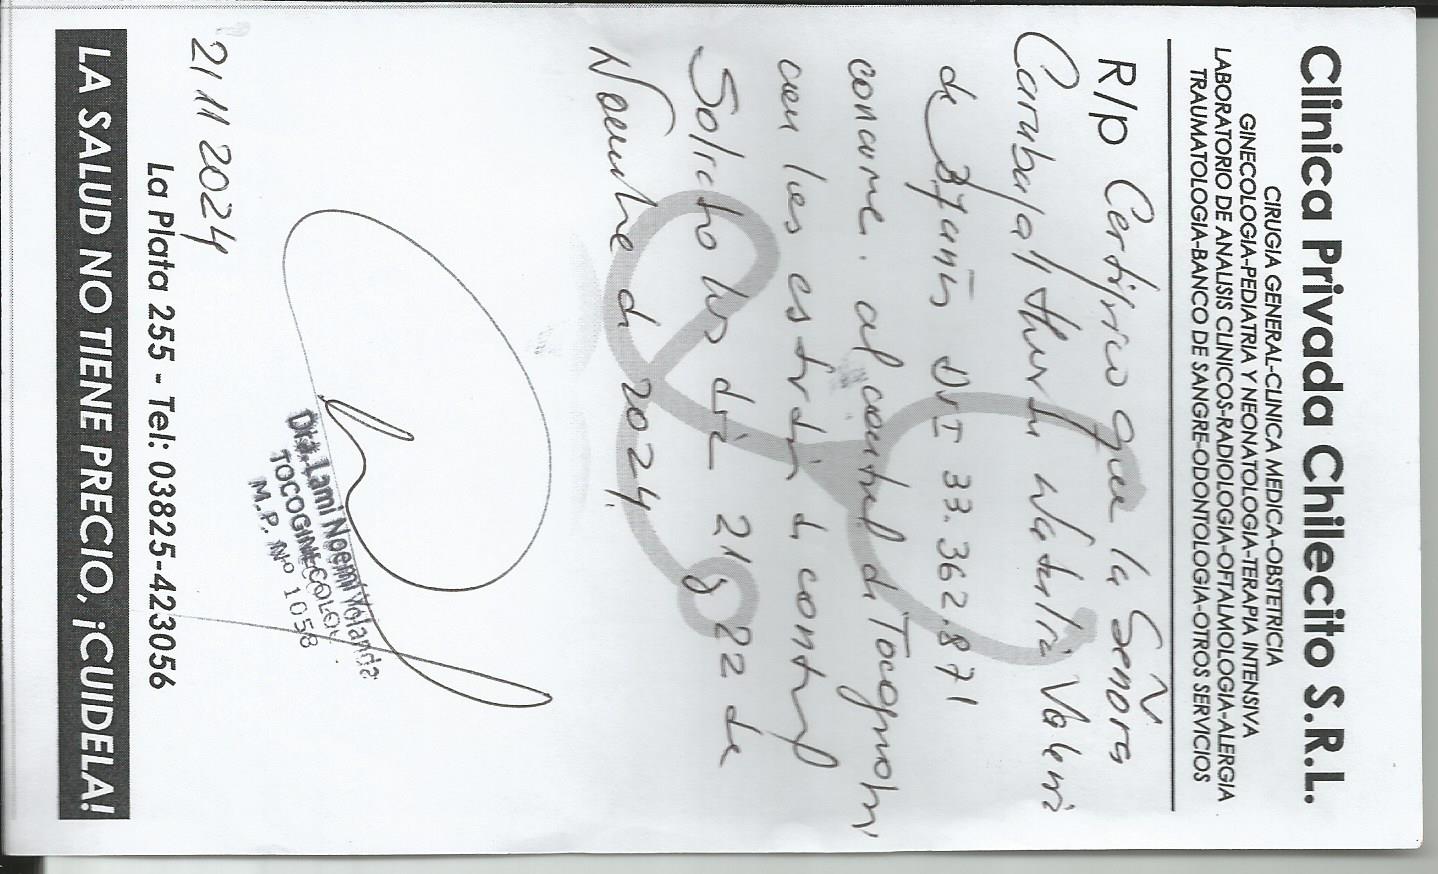 Clinica Privada Chilecito S.R.L.
CIRUGIA GENERAL-CLINICA MEDICA-OBSTETRICIA
GINECOLOGIA-PEDIATRIA Y NEONATOLOGIA-TERAPIA INTENSIVA
LABORATORIO DE ANALISIS CLINICOS-RADIOLOGIA-OFTALMOLOGIA-ALERGIA
TRAUMATOLOGIA-BANCO DE SANGRE-ODONTOLOGIA-OTROS SERVICIOS
R/p Certifico que la Señora
Carubajal Valeri
de DNI 33.362.871
concurre al control de
con los estudi de control
Solicito los día 21 y 22 de
Noviembre de 2024.
Dra. Lami Noemi Yolanda
TOCOGINECOLOG
M.P. Nº 1058
21 11 2024
La Plata 255 - Tel: 03825-423056
LA SALUD NO TIENE PRECIO, ¡CUIDELA!